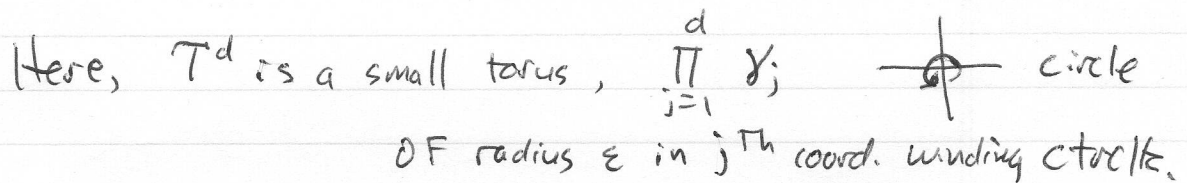 Here, T^d is a small torus, ∏_{j=1}^{d} γ_j circle
OF radius ε in j^Th coord. winding ctrclk.